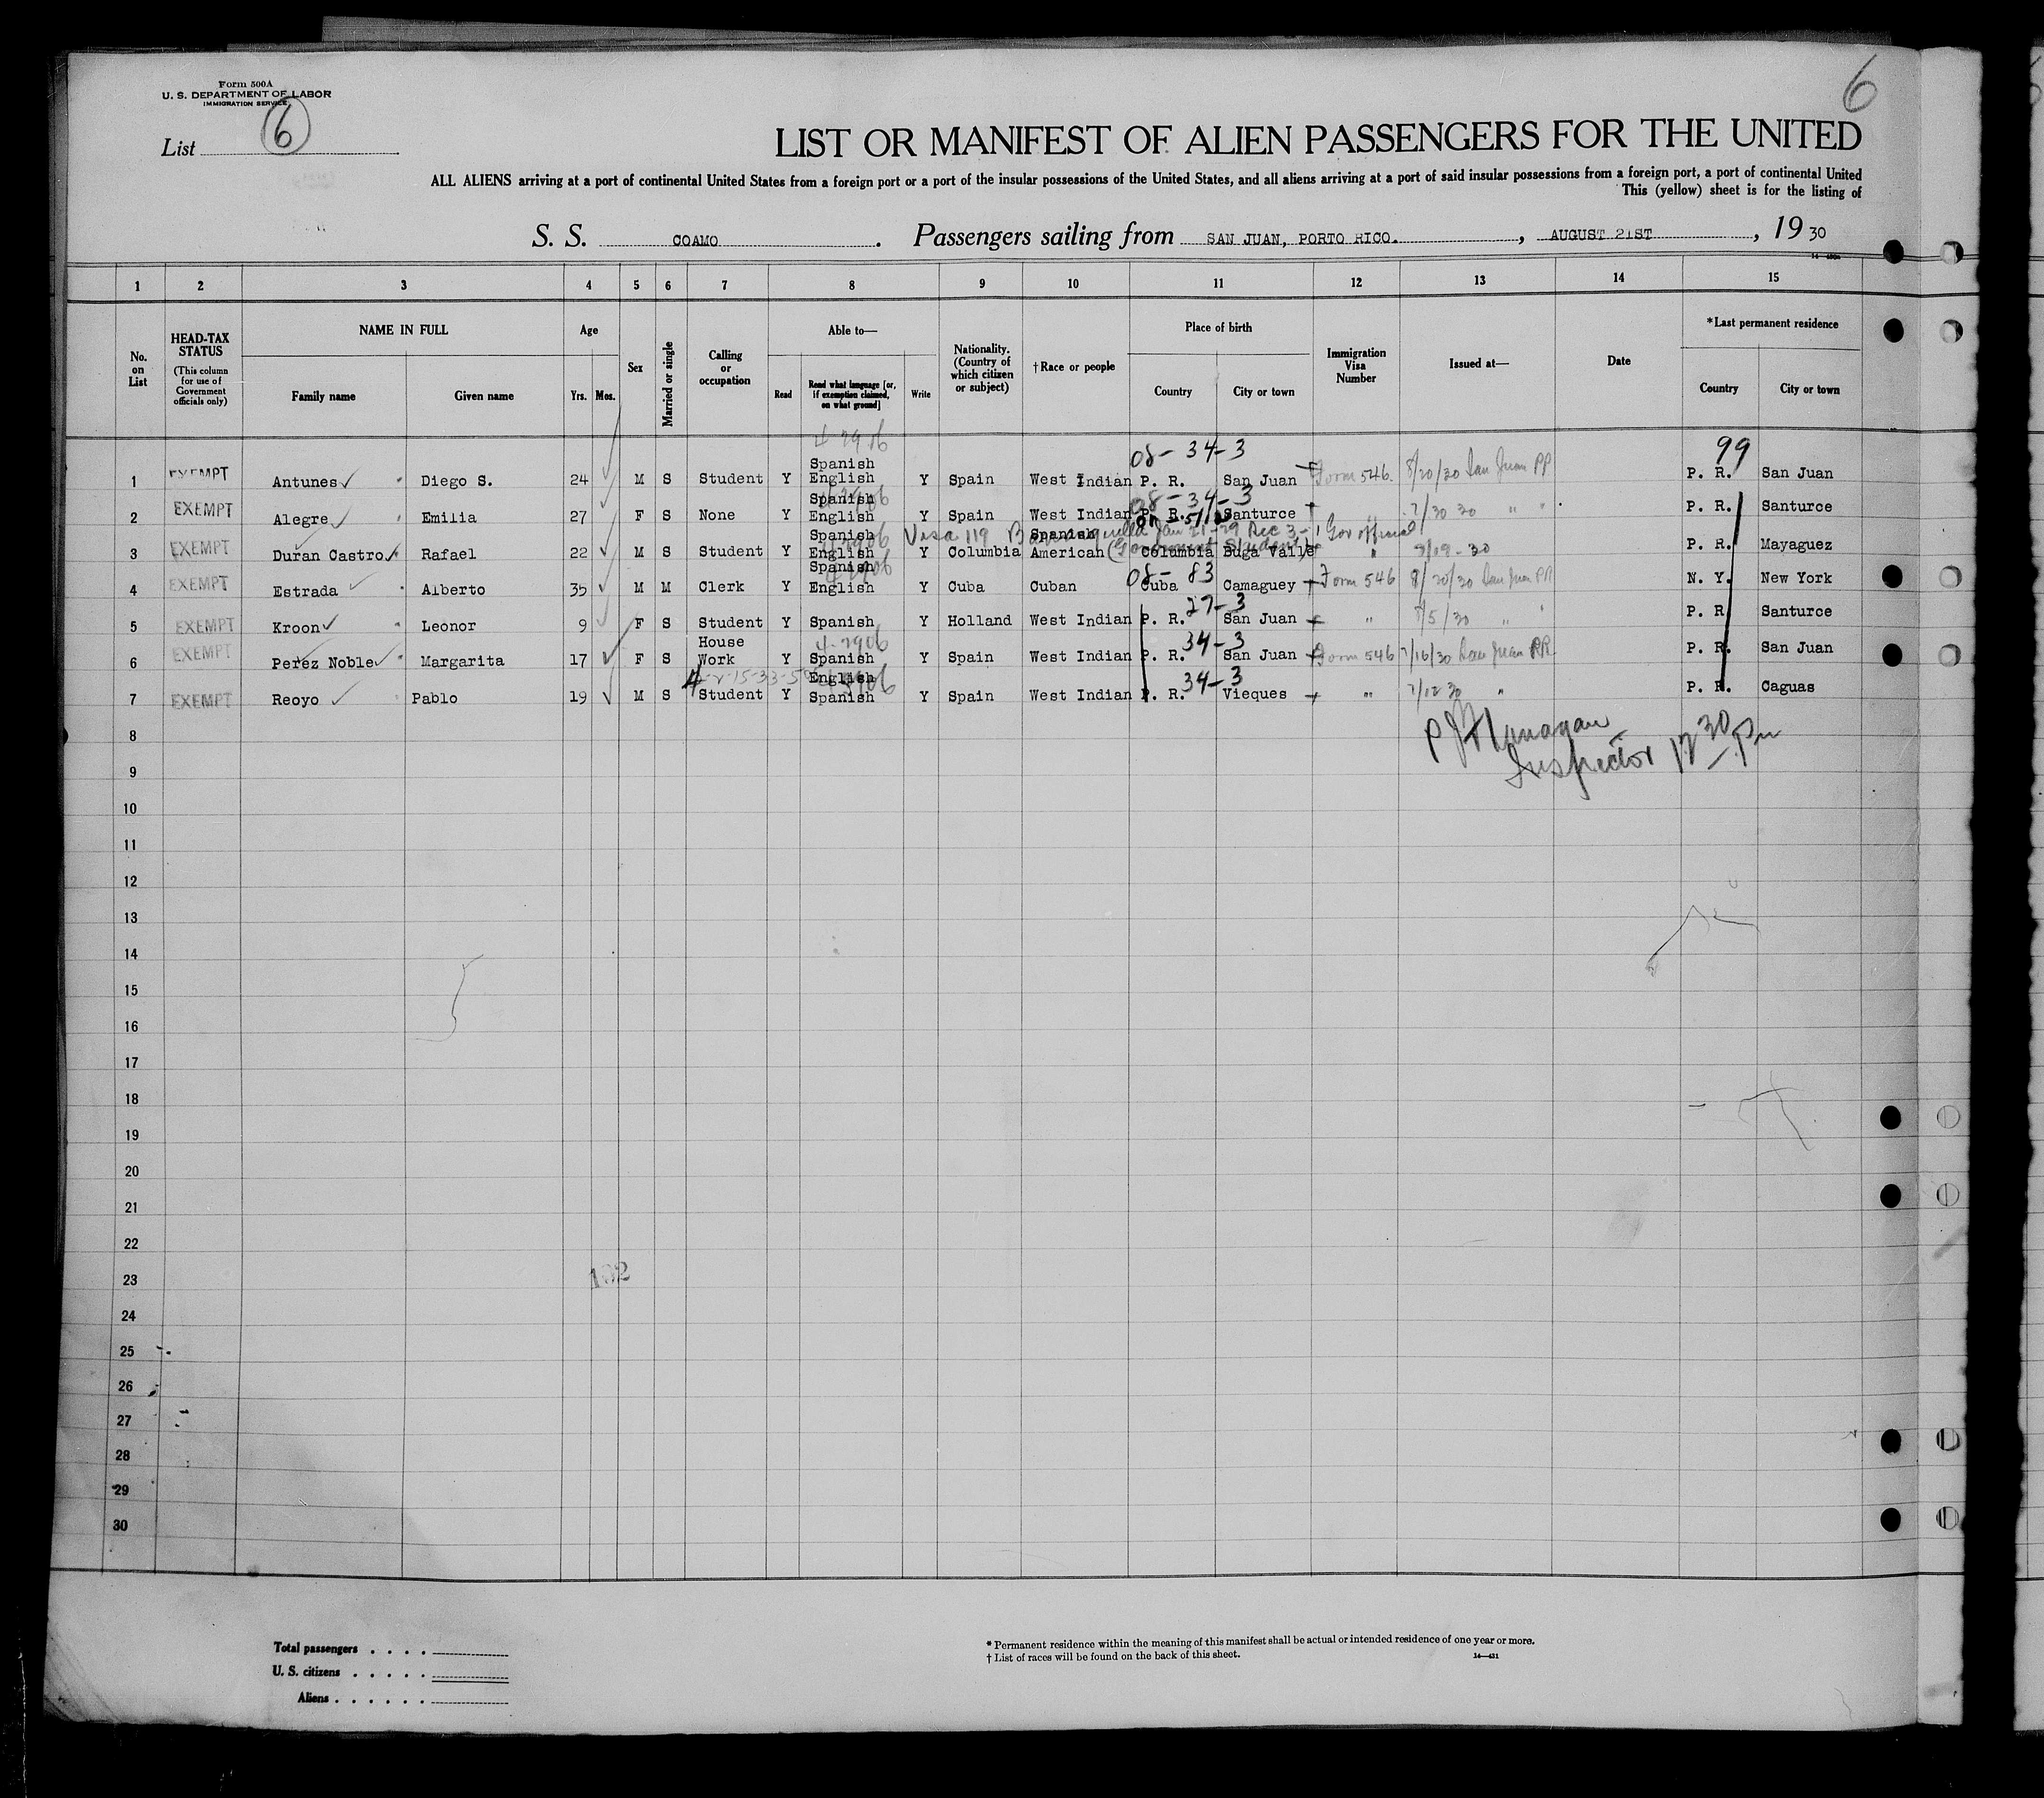 6
Form 500A
U. S. DEPARTMENT OF LABOR
IMMIGRATION SERVICE
List 6
LIST OR MANIFEST OF ALIEN PASSENGERS FOR THE UNITED
ALL ALIENS arriving at a port of continental United States from a foreign port or a port of the insular possessions of the United States, and all aliens arriving at a port of said insular possessions from a foreign port, a port of continental United
This (yellow) sheet is for the listing of
S. S. COAMO. Passengers sailing from SAN JUAN, PORTO RICO., AUGUST 21ST, 1930
1 2 3 4 5 6 7 8 9 10 11 12 13 14 15
No. on List
HEAD-TAX STATUS (This column for use of Government officials only)
NAME IN FULL Family name Given name
Age Yrs. Mos.
Sex
Married or single
Calling or occupation
Able to— Read Read what language [or, if exemption claimed, on what ground] Write
Nationality. (Country of which citizen or subject)
†Race or people
Place of birth Country City or town
Immigration Visa Number
Issued at—
Date
*Last permanent residence Country City or town
08-34-3 99
1 EXEMPT Antunes Diego S. 24 M S Student Y Spanish English Y Spain West Indian P. R. San Juan Form 546. 8/20/30 San Juan PR P. R. San Juan
08-34-3
2 EXEMPT Alegre Emilia 27 F S None Y Spanish English Y Spain West Indian P. R. Santurce " 7/30 30 " " P. R. Santurce
Visa 119 Barranquilla Jan 21-29 Sec 3-1 Gov official
3 EXEMPT Duran Castro Rafael 22 M S Student Y Spanish English Y Columbia Spanish American (Government Student) Columbia Buga Valle " P. R. Mayaguez
08-83
4 EXEMPT Estrada Alberto 35 M M Clerk Y Spanish English Y Cuba Cuban Cuba Camaguey Form 546 8/20/30 San Juan PR N. Y. New York
27-3
5 EXEMPT Kroon Leonor 9 F S Student Y Spanish Y Holland West Indian P. R. San Juan " /5/30 " P. R. Santurce
4-2906 34-3
6 EXEMPT Perez Noble Margarita 17 F S House Work Y Spanish Y Spain West Indian P. R. San Juan Form 546 7/16/30 San Juan PR P. R. San Juan
34-3
7 EXEMPT Reoyo Pablo 19 M S Student Y English Spanish Y Spain West Indian P. R. Vieques " 7/12 30 " P. R. Caguas
P J Flanagan
Inspector 12 30 Pm
8
9
10
11
12
13
14
15
16
17
18
19
20
21
22
23
24
25
26
27
28
29
30
Total passengers
U. S. citizens
Aliens
* Permanent residence within the meaning of this manifest shall be actual or intended residence of one year or more.
† List of races will be found on the back of this sheet.
14—431